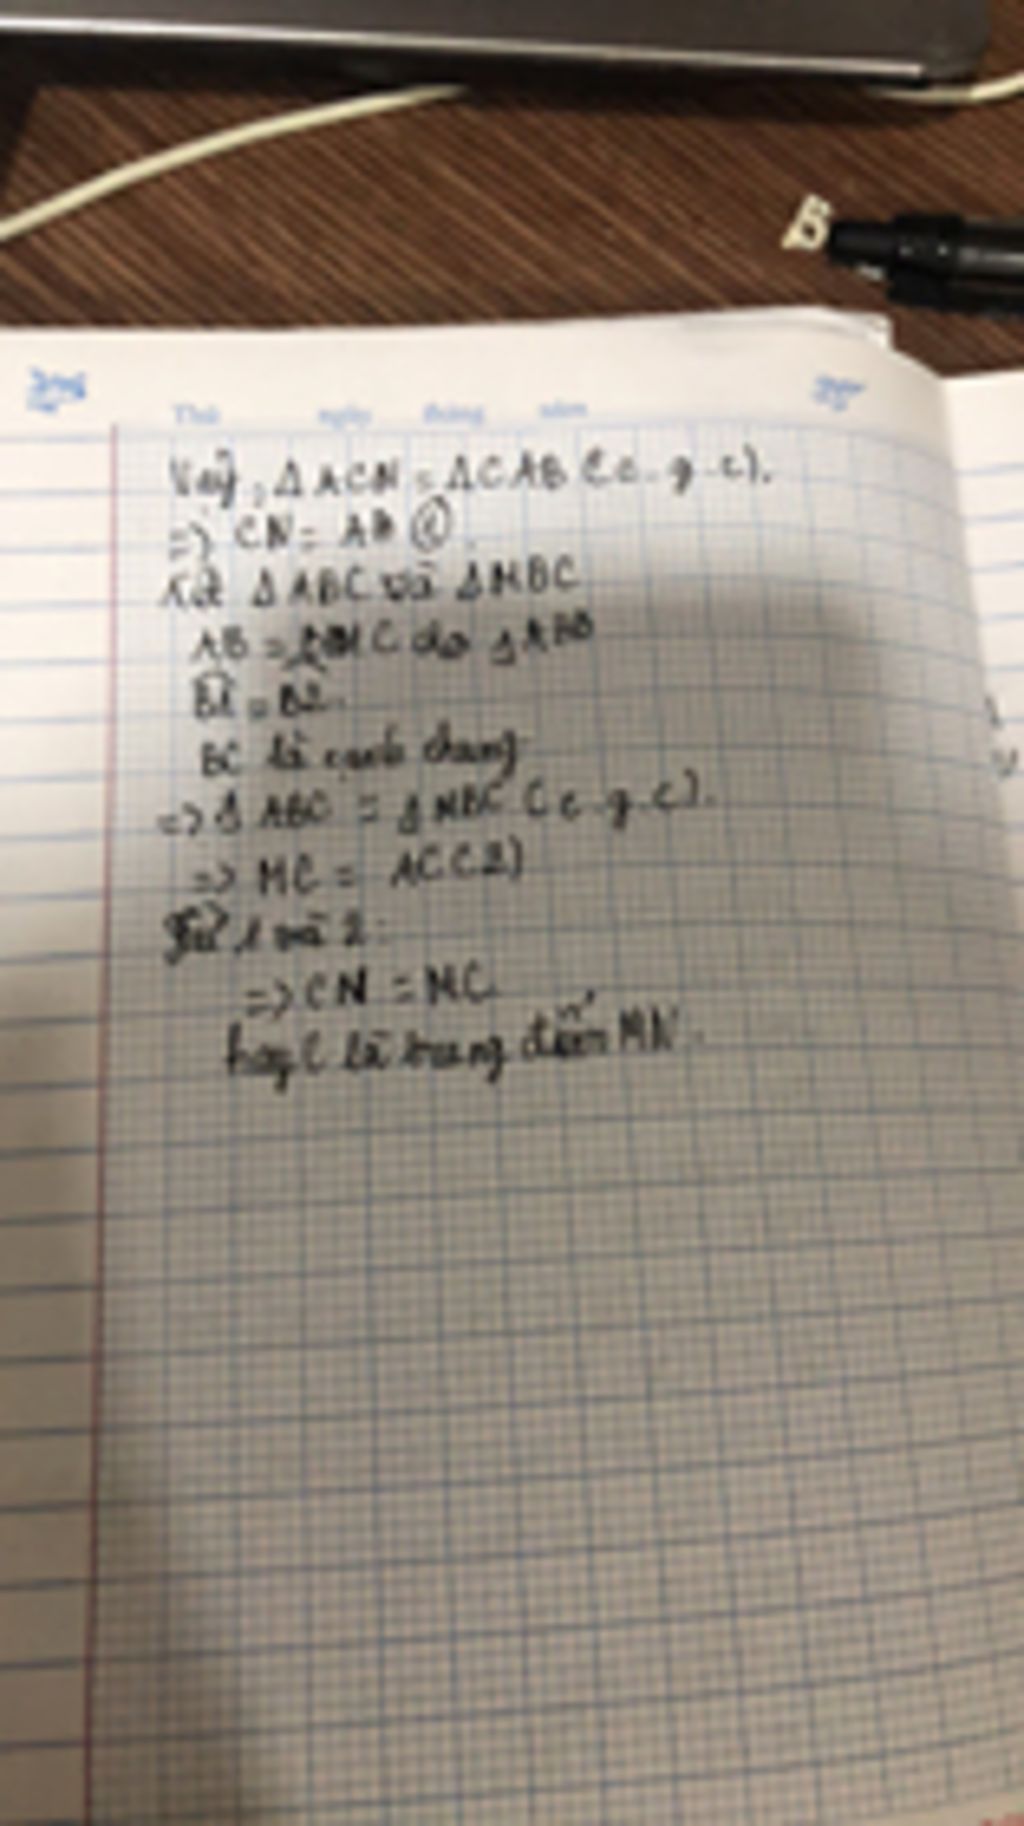 Thứ ngày tháng năm
Vậy, Δ ACN = ΔCAB (c.g.c).
=> CN = AB ①
Xét Δ ABC và Δ MBC
AB = MC do Δ ABB
B1 = B2.
BC là cạnh chung
=> Δ ABC = Δ MBC (c.g.c).
=> MC = AC (2)
Từ 1 và 2:
=> CN = MC
hay C là trung điểm MN.